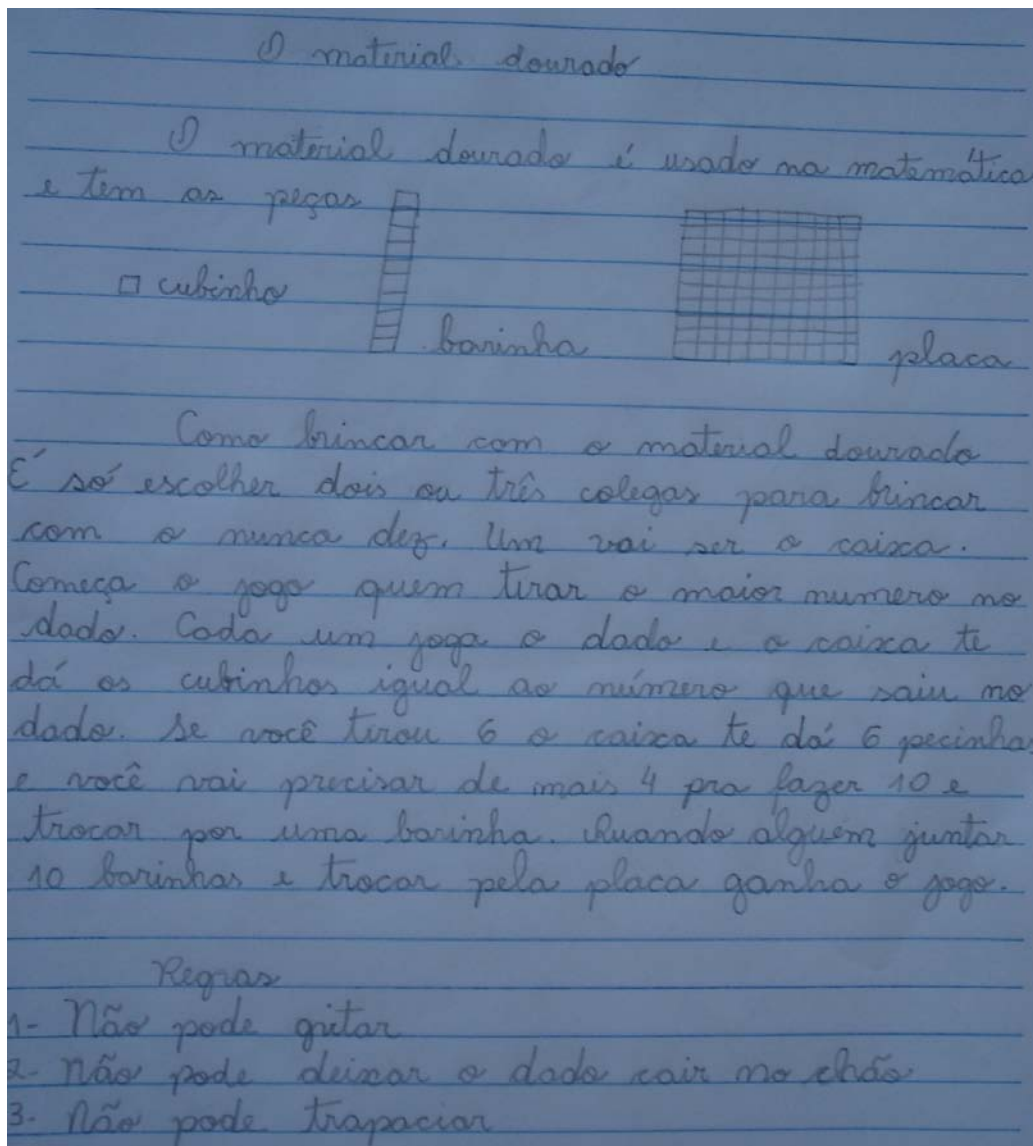 O material dourado
O material dourado é usado na matemática
e tem as peças
cubinho
barinha
placa
Como brincar com o material dourado
É só escolher dois ou três colegas para brincar
com o nunca dez. Um vai ser o caixa.
Começa o jogo quem tirar o maior numero no
dado. Cada um joga o dado e o caixa te
dá os cubinhos igual ao número que saiu no
dado. Se você tirou 6 o caixa te dá 6 pecinha
e você vai precisar de mais 4 pra fazer 10 e
trocar por uma barinha. Quando alguém juntar
10 barinhas e trocar pela placa ganha o jogo.
Regras
1- Não pode gritar
2- Não pode deixar o dado cair no chão
3- Não pode trapaciar